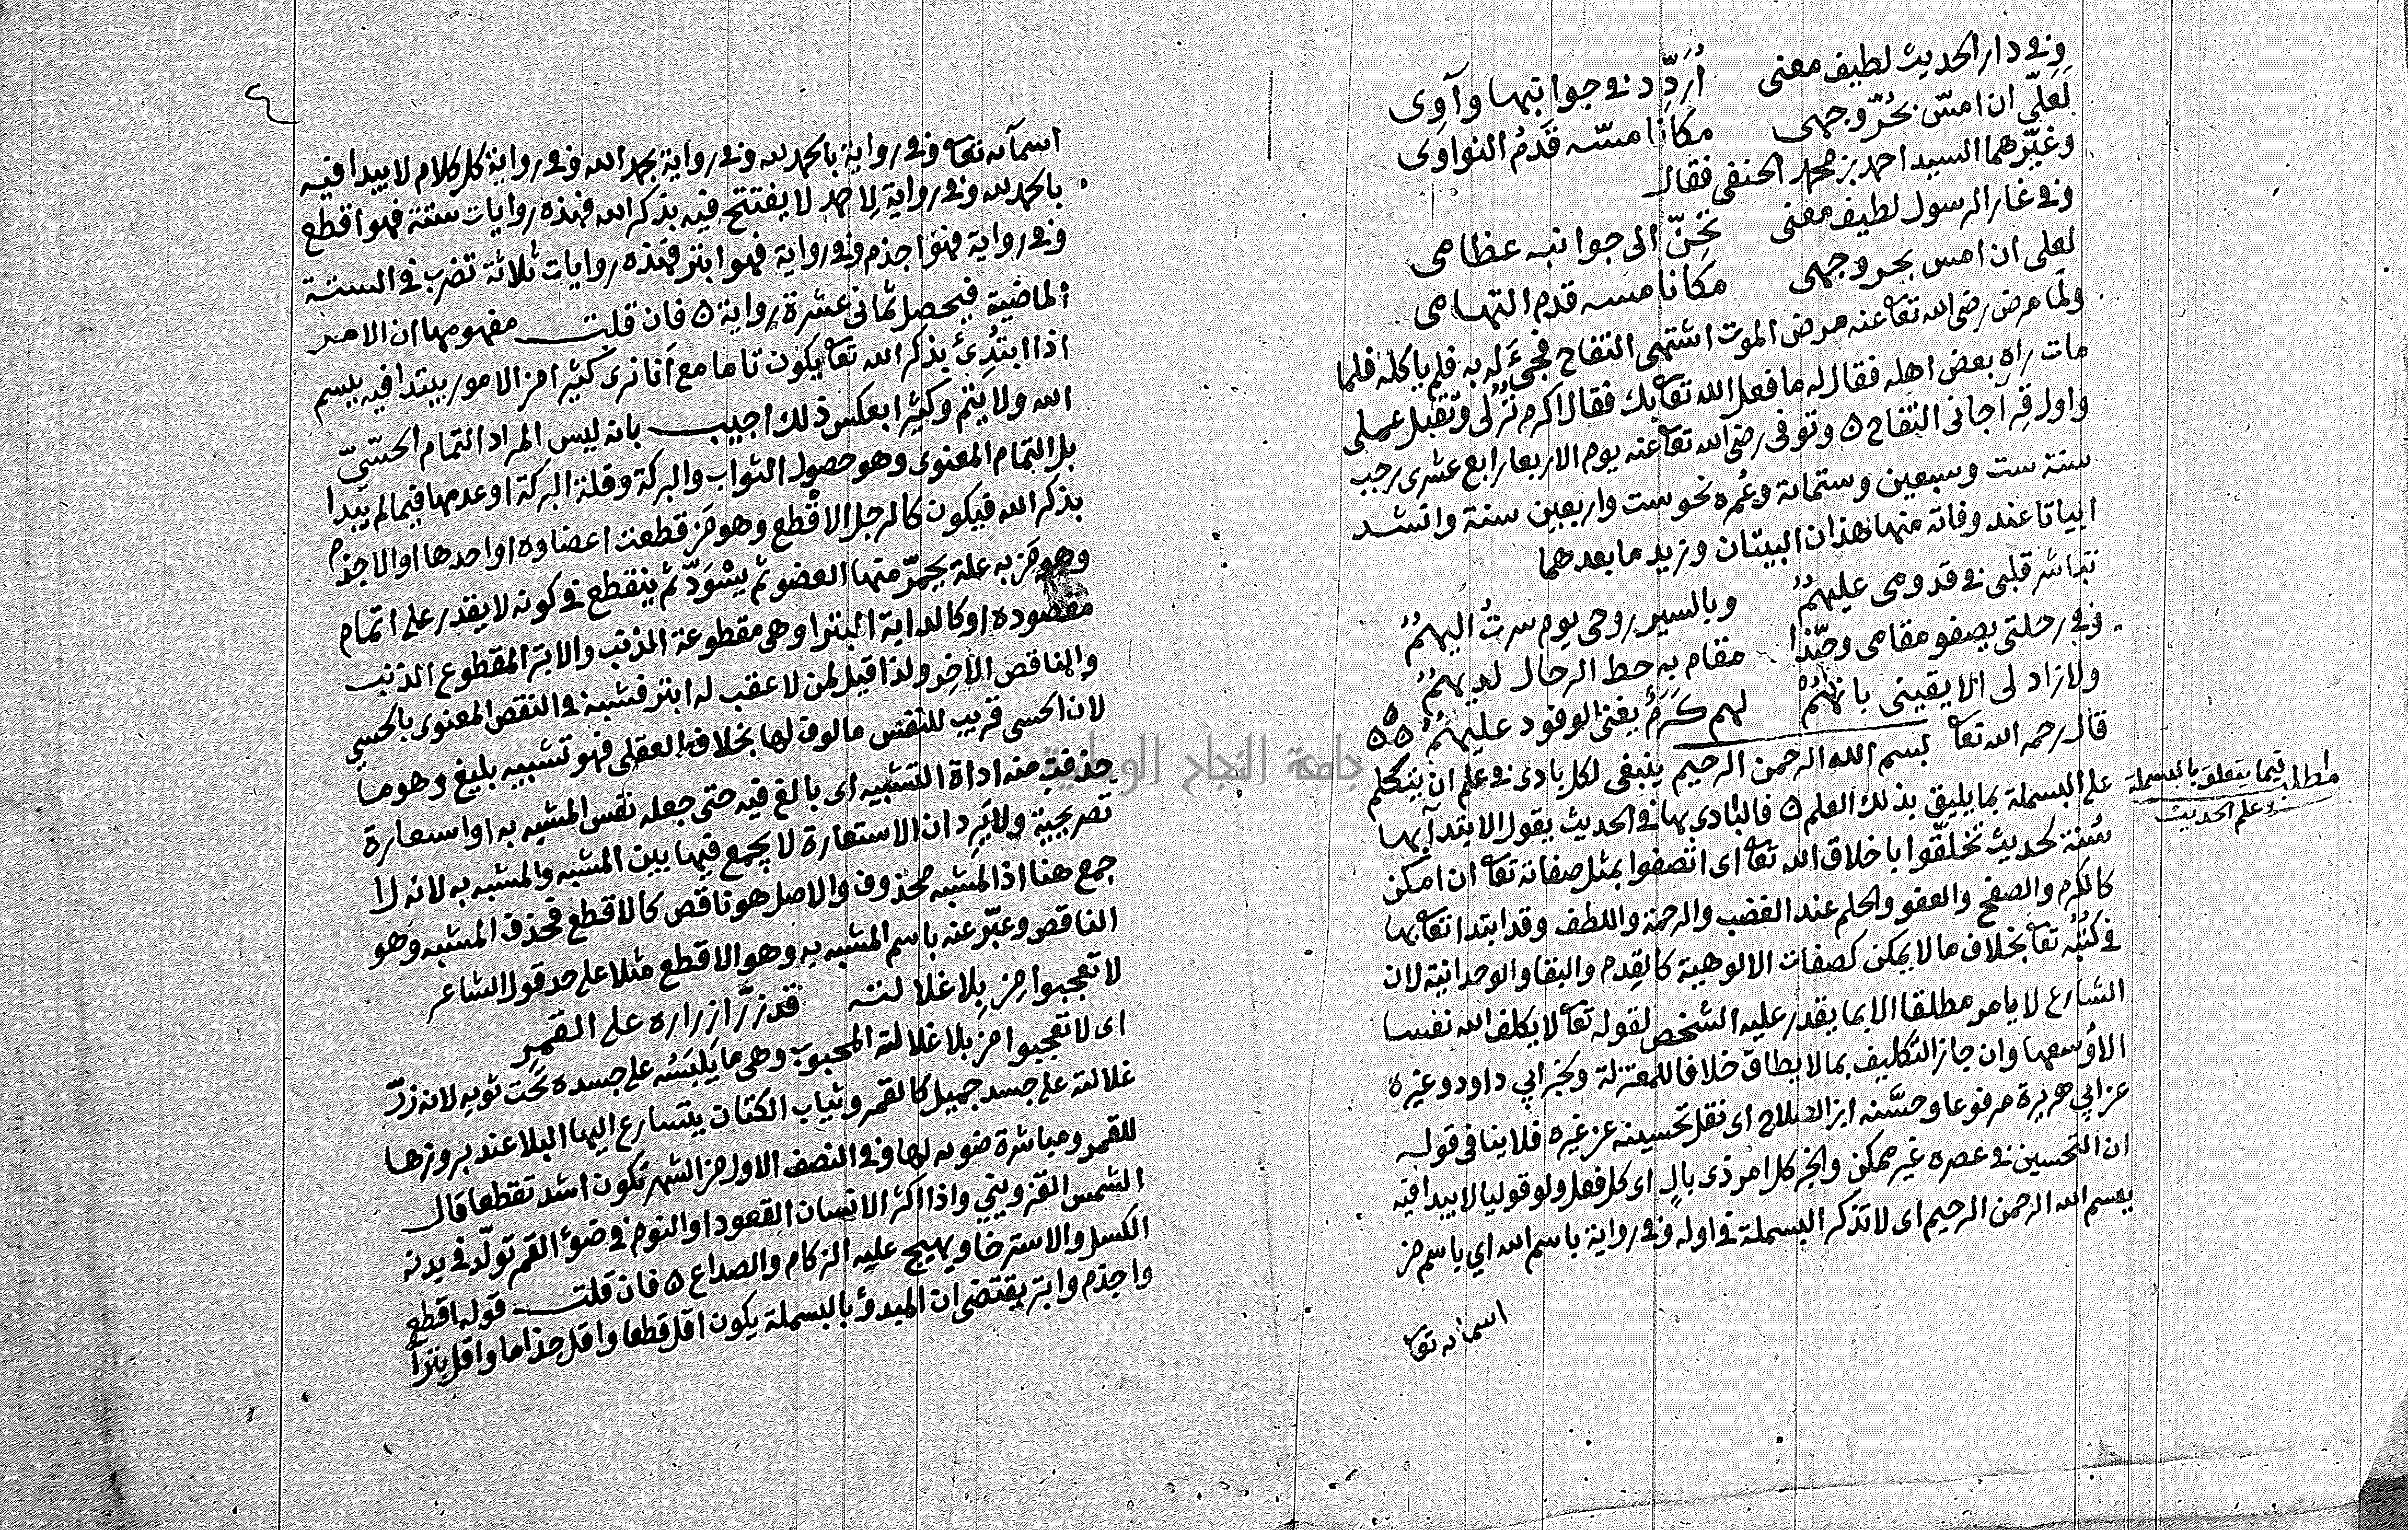 وفي دار الحديث لطيف معنى أردد في جوانبها وآوى
لعلي ان امس بحر وجهى مكانا مسه قدم النواوى
وغيرهما السيد احمد بن محمد الحنفى فقال
وفي غار الرسول لطيف معنى تحن الى جوانبه عظامى
لعلى ان امس بحر وجهى مكانا مسه قدم التهامى
ولما مرض رضى الله تعا عنه مرض الموت اشتهى التفاح فجىء له به فلم ياكله فلما
مات راه بعض اهله فقال له ما فعل الله تعا بك فقال اكرم نزلى وتقبل عملى
واول قِرا جانى التفاح ٥ وتوفى رضى الله تعا عنه يوم الاربعا رابع عشرى رجب
سنة ست وسبعين وستماية وعمره نحو ست واربعين سنة وانشد
ابياتا عند وفاته منها هذان البيتان وزيد ما بعدهما
تباشر قلبى في قدومى عليهمُ وبالسير روحى يوم سرتُ اليهمُ
وفي رحلتى يصفو مقامى وحبذا مقام به حط الرحال لديهمُ
ولا زاد لى الا يقينى بانهمُ لهم كَرَمٌ يغنى الوفود عليهمُ ٥٥
قال رحمه الله تعا بسم الله الرحمن الرحيم ينبغى لكل بادى في علم ان يتكلم
على البسملة بما يليق بذلك العلم ٥ فالبادى بها في الحديث يقول الابتدا بها
سُنة لحديث تخلقوا باخلاق الله تعا اى اتصفوا بمثل صفاته تعا ان امكن
كالكرم والصفح والعفو والحلم عند الغضب والرحمة واللطف وقد ابتدا تعا بها
في كتبه تعا بخلاف ما لا يمكن كصفات الالوهية كالقدم والبقا والوحدانية لان
الشارع لا يامر مطلقا الا بما يقدر عليه الشخص لقوله تعا لا يكلف الله نفسا
الا وسعها وان جاز التكليف بما لا يطاق خلافا للمعتزلة وبخبر ابي داود وغيره
عن ابي هريرة مرفوعا وحسّنه ابن الصلاح اى نقل تحسينه عن غيره فلا ينافى قوله
ان التحسين في عصره غير ممكن والخبر كل امر ذى بالٍ اى كل فعل ولو قوليا لا يبدا فيه
ببسم الله الرحمن الرحيم اى لا تذكر البسملة في اوله وفي رواية باسم الله اي باسم من
اسمائه تعا
مطلب فيما يتعلق بالبسملة
في علم الحديث
٤
اسمآئه تعا وفي رواية بالحمد لله وفي رواية بحمد الله وفي رواية كل كلام لا يبدا فيه
بالحمد لله وفي رواية لا يفتتح فيه بذكر الله فهذه روايات ستة فهو اقطع
وفي رواية فهو اجذم وفي رواية فهو ابتر فهذه روايات ثلاثة تضرب في الستة
الماضية فيحصل ثمانى عشرة رواية ٥ فان قلت مفهومها ان الامر
اذا ابتُدئ بذكر الله تعا يكون تاما مع أنا نرى كثيرا من الامور يبتدا فيه ببسم
الله ولا يتم وكثيرا بعكس ذلك اجيب بانه ليس المراد التمام الحسّيّ
بل التمام المعنوى وهو حصول الثواب والبركة وقلة البركة او عدمها فيما لم يبدا
بذكر الله فيكون كالرجل الاقطع وهو مَن قطعت اعضاوه او احدها او الاجذم
وهو مَن به علة يحمرّ منها العضو ثم يسْوَدّ ثم ينقطع في كونه لا يقدر على اتمام
مقصوده او كالداية البترا وهى مقطوعة الذنب والابتر المقطوع الذنب
والناقص الآخِر ولذا قيل لمن لا عقب له ابتر فشبه في النقص المعنوى بالحسي
لان الحسى قريب للنفس مالوف لها بخلاف العقلى فهو تشبيه بليغ وهو ما
حذفت منه اداة التشبيه اى بالغ فيه حتى جعله نفس المشبه به او استعارة
تصريحية ولا يَرِد ان الاستعارة لا يجمع فيها بين المشبه والمشبه به لانه لا
جمع هنا اذ المشبه محذوف والاصل هو ناقص كالاقطع فحذف المشبه وهو
الناقص وعبّر عنه باسم المشبه به وهو الاقطع مثلا على حد قول الشاعر
لا تعجبوا مِن بِلا غلالته قد زرّ ازراره على القمرِ
اى لا تعجبوا من بلا غلالته المحبوب وهى ما يَلبَسُه على جسده تحت ثوبه لانه زرّ
غلالته على جسد جميل كالقمر وثياب الكتان يتسارع اليها البلا عند بروزها
للقمر ومباشرة ضويه لها وفي النصف الاول من الشهر تكون اشد تقطعا قال
الشمس القزوينيّ واذا اكثر الانسان القعود او النوم في ضوء القمر تولّد في بدنه
الكسل والاسترخا ويهيج عليه الزكام والصداع ٥ فان قلت قوله اقطع
واجذم وابتر يقتضى ان المبدؤ بالبسملة يكون اقل قطعا واقل جذاما واقل بترا
جامعة النجاح الوطنية